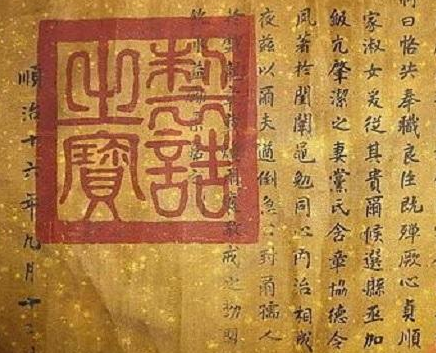 曰恪共奉職良臣既殫厥心貞順
家淑女爰從其貴爾候選縣丞加
級亢肇潔之妻黨氏含章協德令
著於閨闈黽勉同心內治相成
夜茲以爾夫急公封爾孺人
於戲敬戒之
制誥之寶
順治十六年九月十三